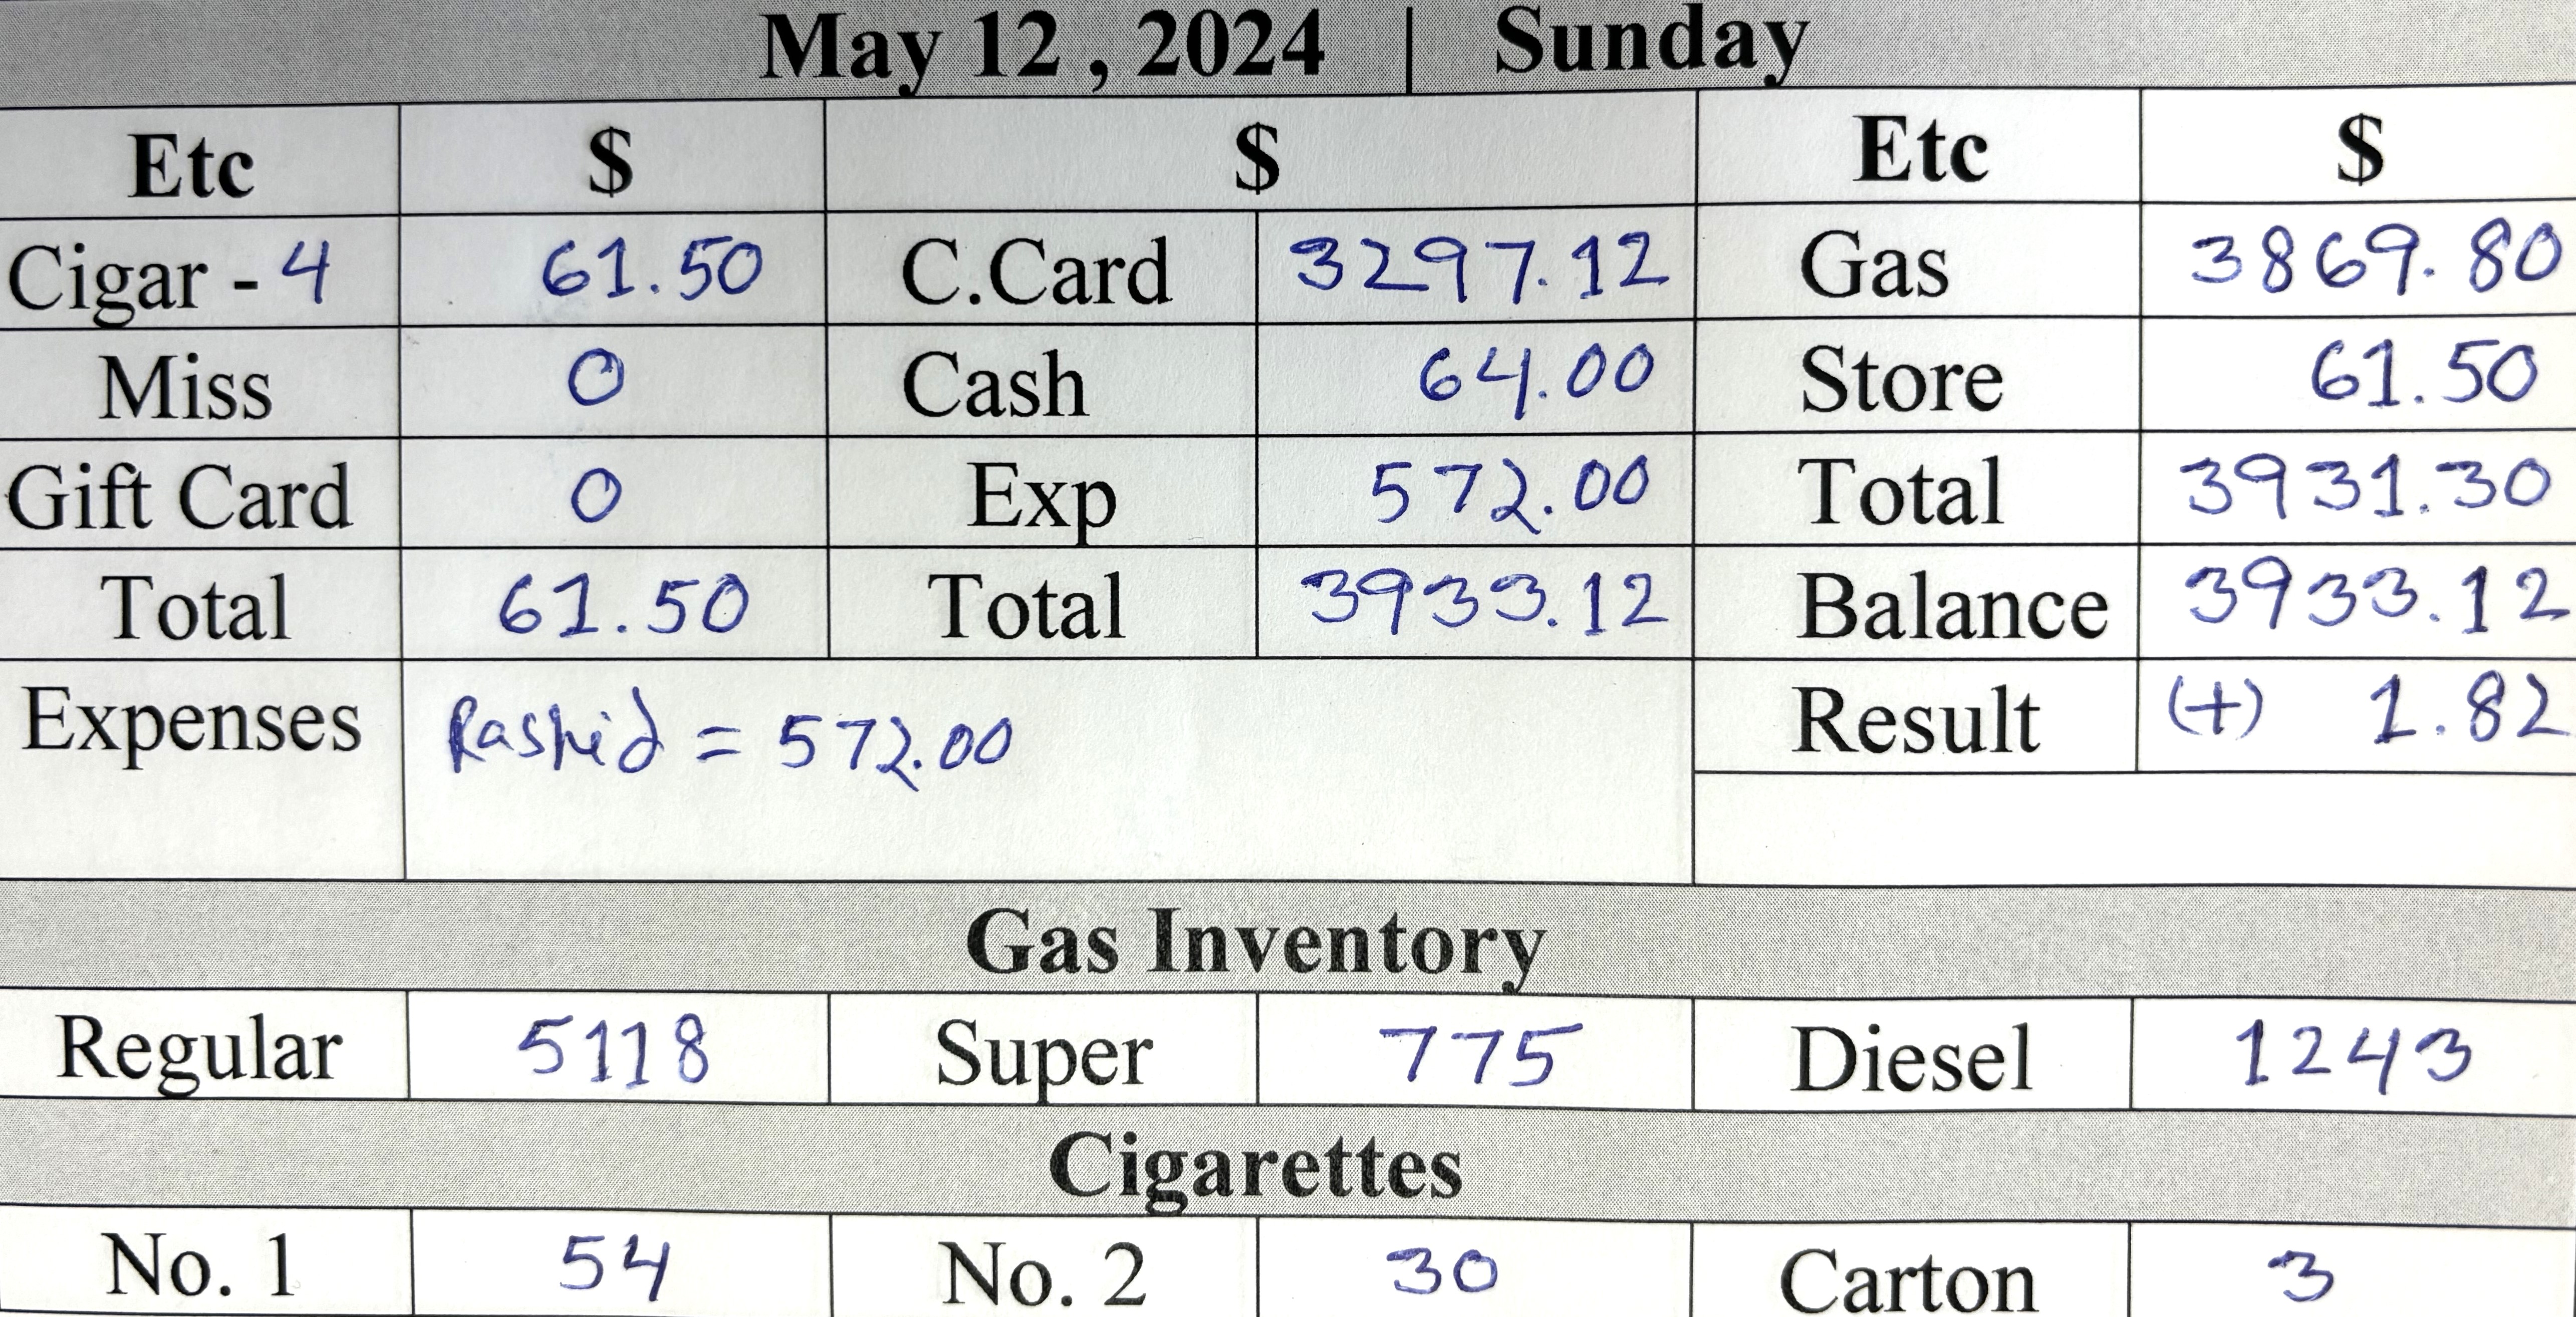 May 12 , 2024 | Sunday
Etc $ $ Etc $
Cigar - 4 61.50 C.Card 3297.12 Gas 3869.80
Miss 0 Cash 64.00 Store 61.50
Gift Card 0 Exp 572.00 Total 3931.30
Total 61.50 Total 3933.12 Balance 3933.12
Expenses Rashid = 572.00 Result (+) 1.82
Gas Inventory
Regular 5118 Super 775 Diesel 1243
Cigarettes
No. 1 54 No. 2 30 Carton 3